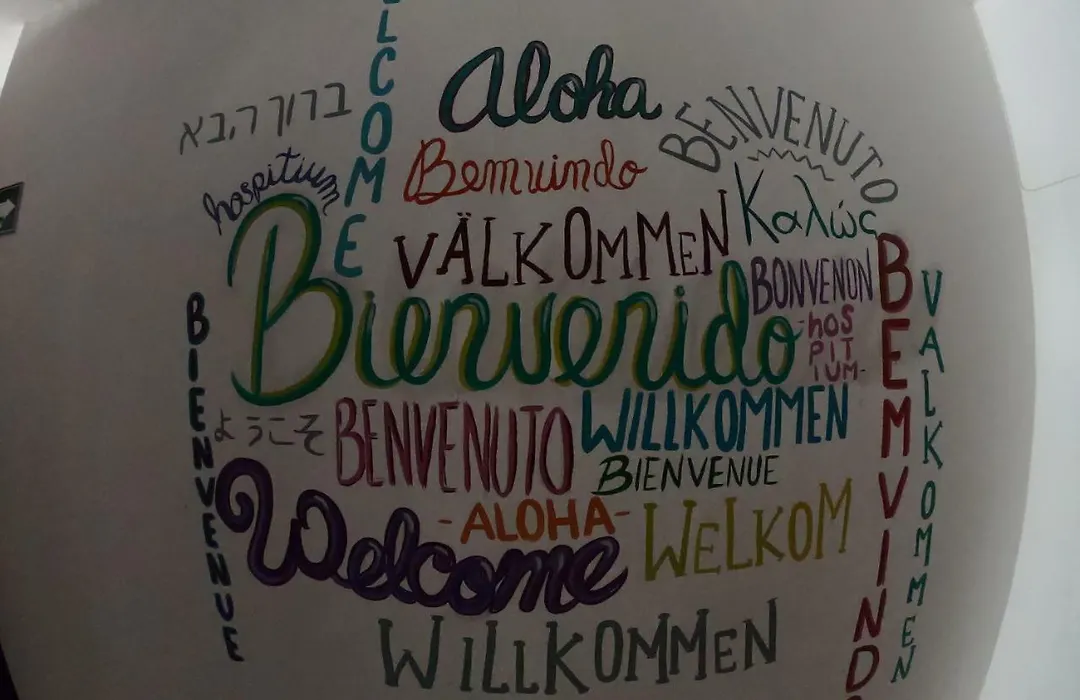 ELCOME
Aloha
ברוך הבא
BENVENUTO
Bemvindo
hospitium
Καλώς
VÄLKOMMEN
BONVENON
Bienvenido
-hOS
PIT
IUM-
BEMVINDO
VALKOMMEN
BIENVENUE
ようこそ
BENVENUTO
WILLKOMMEN
BIENVENUE
-ALOHA-
WELKOM
Welcome
WILLKOMMEN